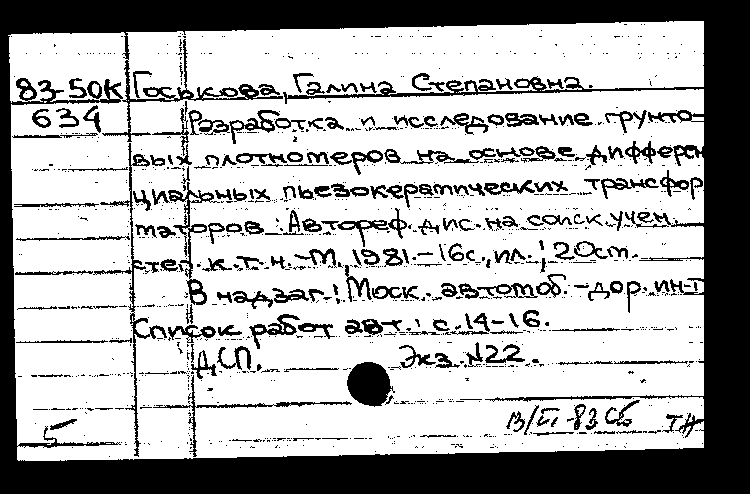 83-50К Госькова, Галина Степановна.
634 Разработка и исследование грунто-
вых плотномеров на основе дифферен
циальных пьезокерамических трансфор
маторов : Автореф. дис. на соиск. учен.
степ. к.т.н. -М., 1981.-16с., ил.; 20см.
В надзаг.: Моск. автомоб.-дор. ин-т
Список работ авт.: с.14-16.
ДСП. Экз. №22.
5 13/VI-83